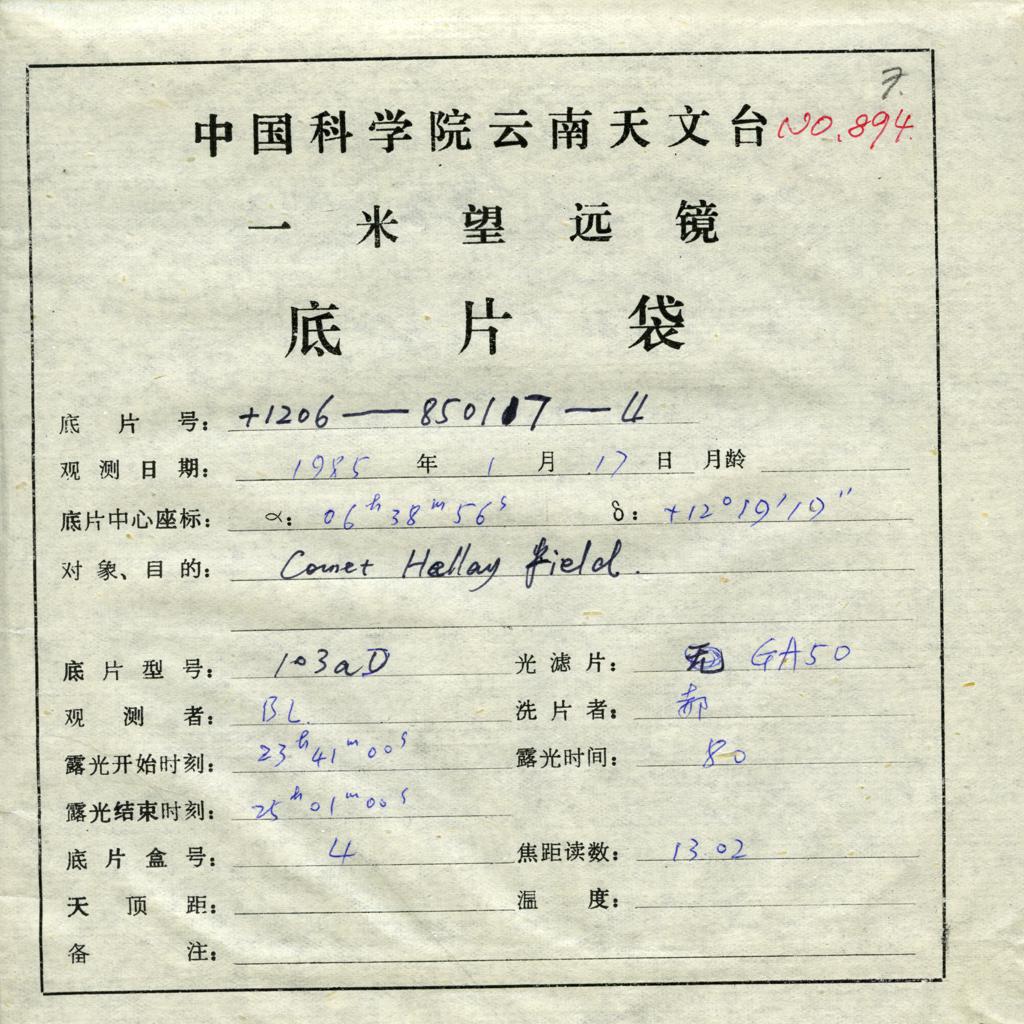 7.
中国科学院云南天文台 NO.894
一米望远镜
底片袋
底片号: +1206—850117—4
观测日期: 1985 年 1 月 17 日 月龄
底片中心座标: α: 06h38m56s δ: +12°19′19″
对象、目的: Comet Hallay Field.
底片型号: 103aD 光滤片: GA50
观测者: BL. 洗片者: 郝
露光开始时刻: 23h41m00s 露光时间: 80
露光结束时刻: 25h01m00s
底片盒号: 4 焦距读数: 13.02
天顶距: 温度:
备注: